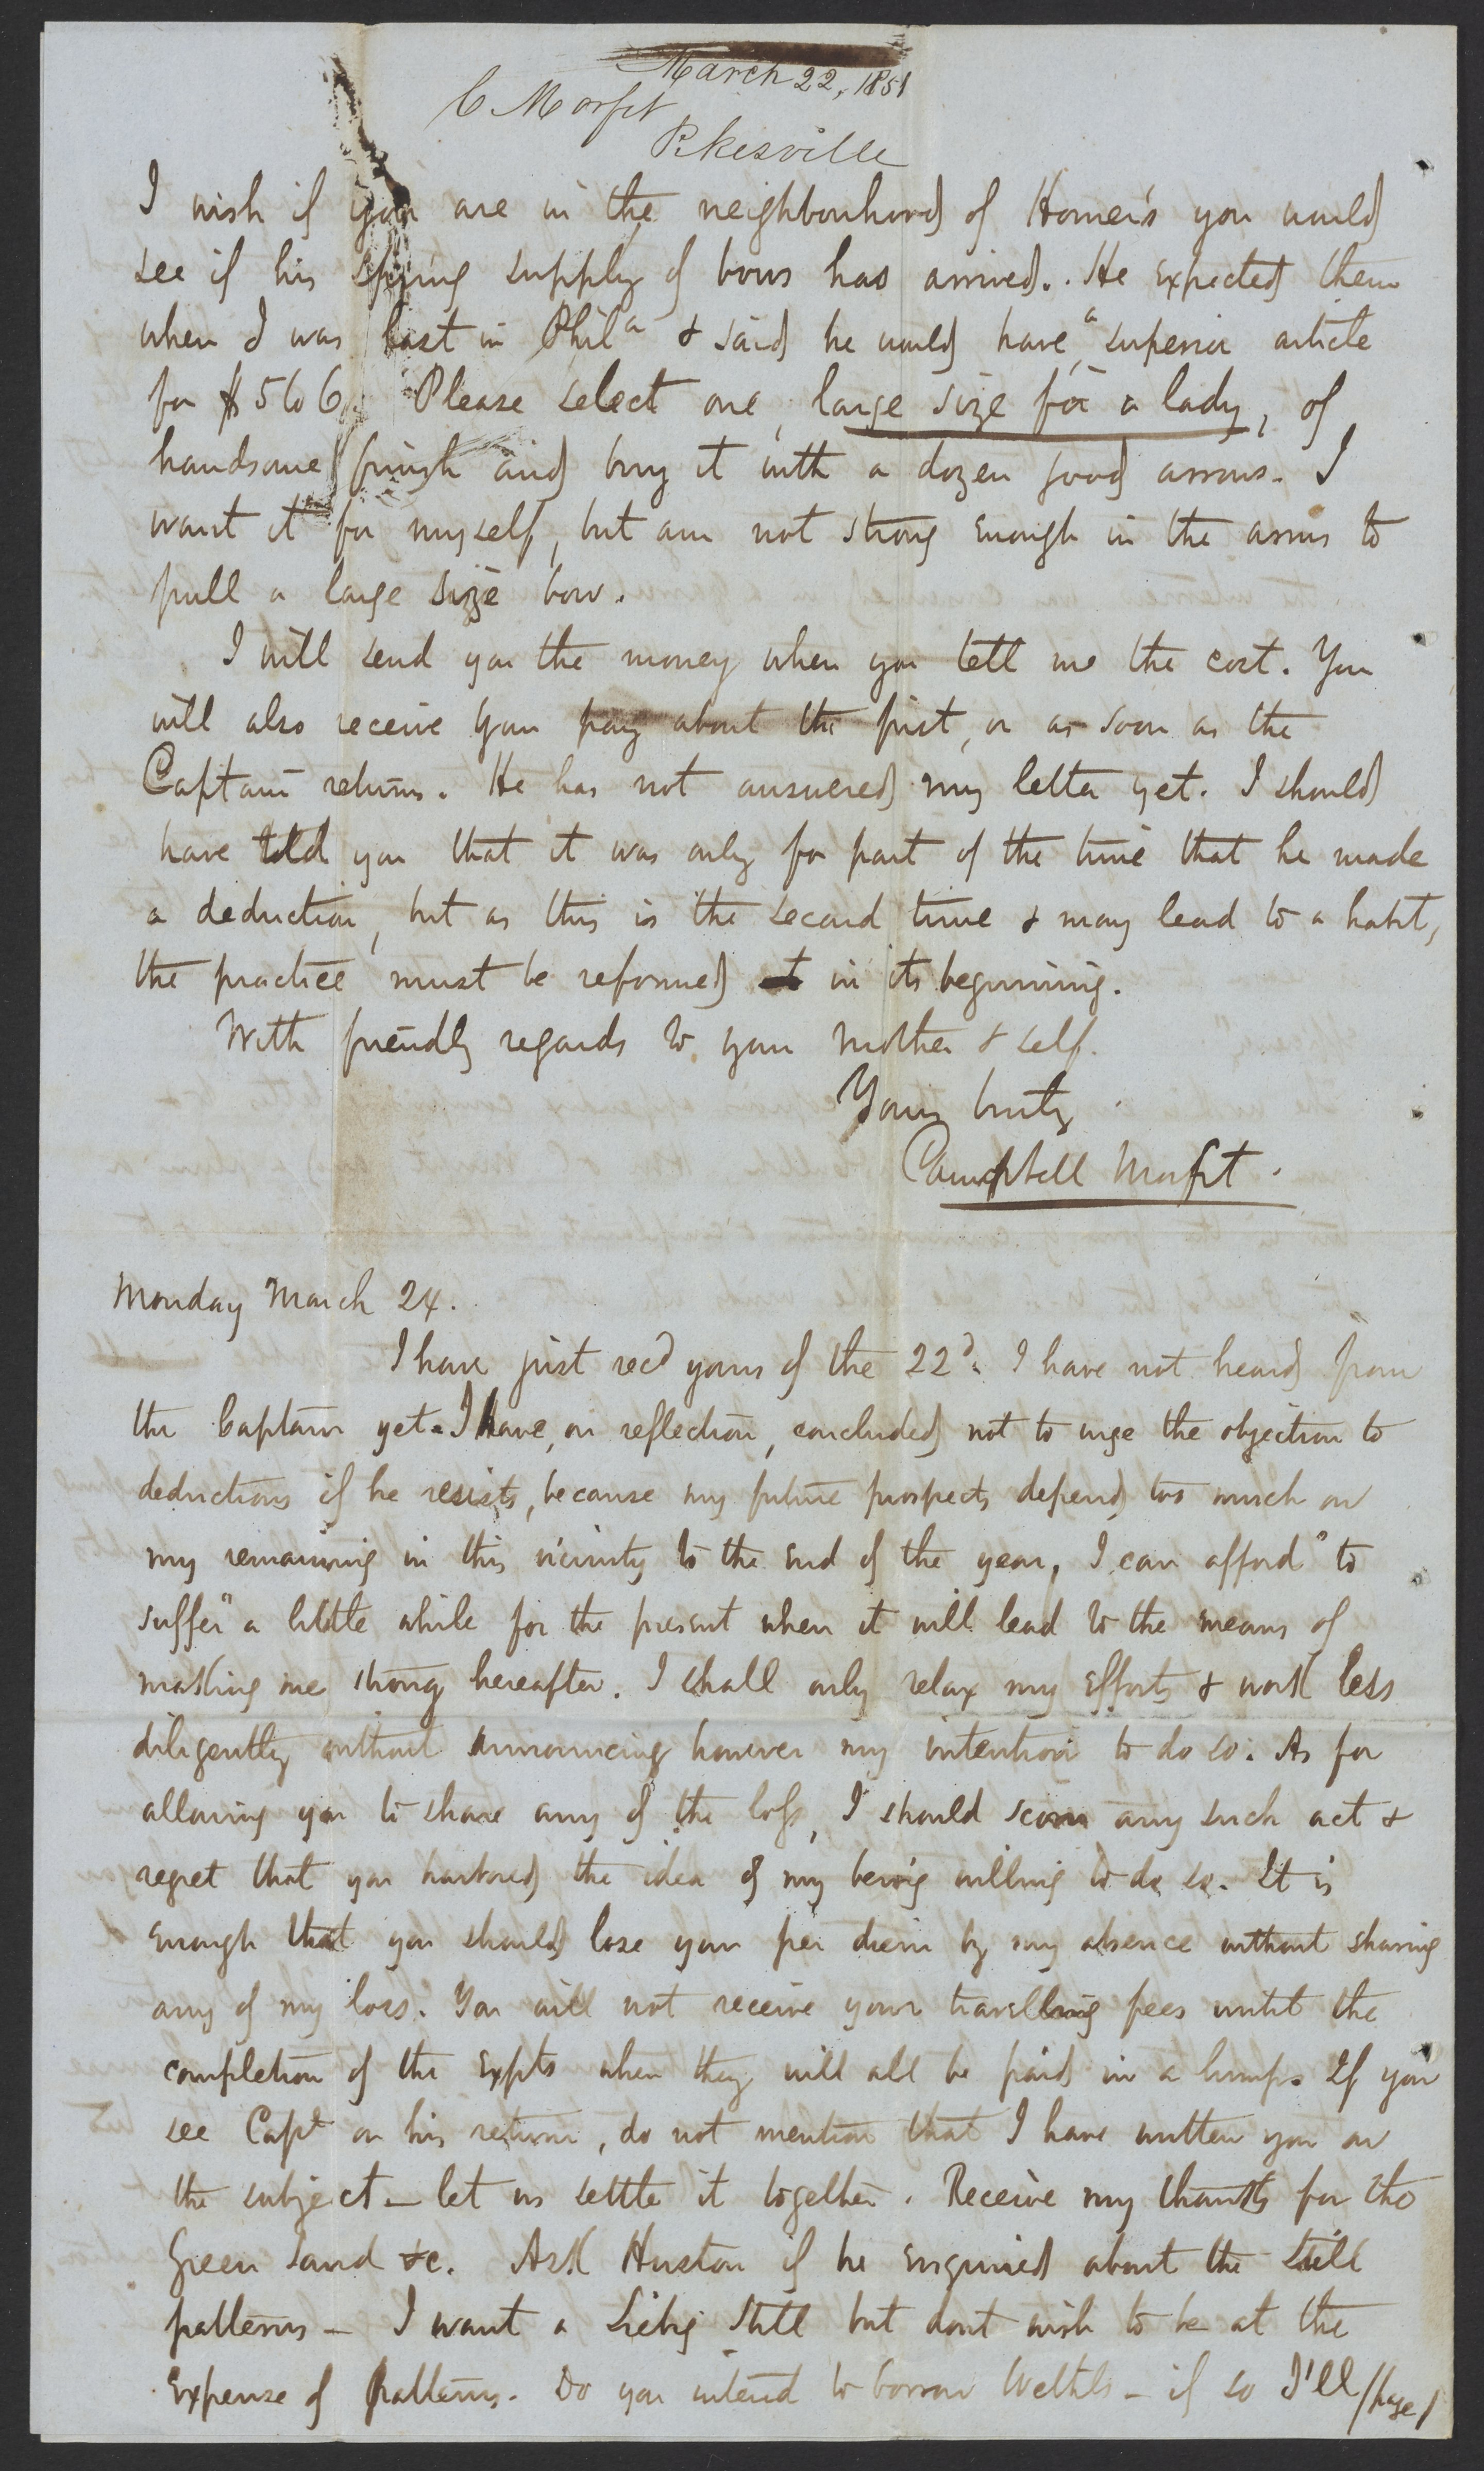 March 22, 1851
C Morfit
Pikesville
I wish if you are in the neighbourhood of Horner's you would
see if his spring supply of bows has arrived. He expected them
when I was last in Phila & said he would have a superior article
for $5 to 6. Please select one, large size for a lady, of
handsome finish and buy it with a dozen good arrows. I
want it for myself, but am not strong enough in the arms to
pull a large size bow.
I will send you the money when you tell me the cost. You
will also receive your pay about the first, or as soon as the
Captain returns. He has not answered my letter yet. I should
have told you that it was only for part of the time that he made
a deduction, but as this is the second time & may lead to a habit,
the practice must be reformed in its beginning.
With friendly regards to your mother & self.
Yours truly
Campbell Morfit.
Monday March 24.
I have just recd yours of the 22d. I have not heard from
the Captain yet. I have, on reflection, concluded not to urge the objection to
deductions if he resists, because my future prospects depend too much on
my remaining in this vicinity to the end of the year, I can afford "to
suffer" a little while for the present when it will lead to the means of
making me strong hereafter. I shall only relax my efforts & work less
diligently without announcing however my intention to do so. As for
allowing you to share any of the loss, I should scorn any such act &
regret that you harbored the idea of my being willing to do so. It is
enough that you should lose your per diem by my absence without sharing
any of my loss. You will not receive your travelling fees until the
completion of the expts when they will all be paid in a lump. If you
see Capt on his return, do not mention that I have written you on
the subject – let us settle it together. Receive my thanks for the
Green Sand &c. Ask Huston if he enquired about the still
patterns – I want a Liebig Still but dont wish to be at the
expense of patterns. Do you intend to borrow – if so I'll /page/